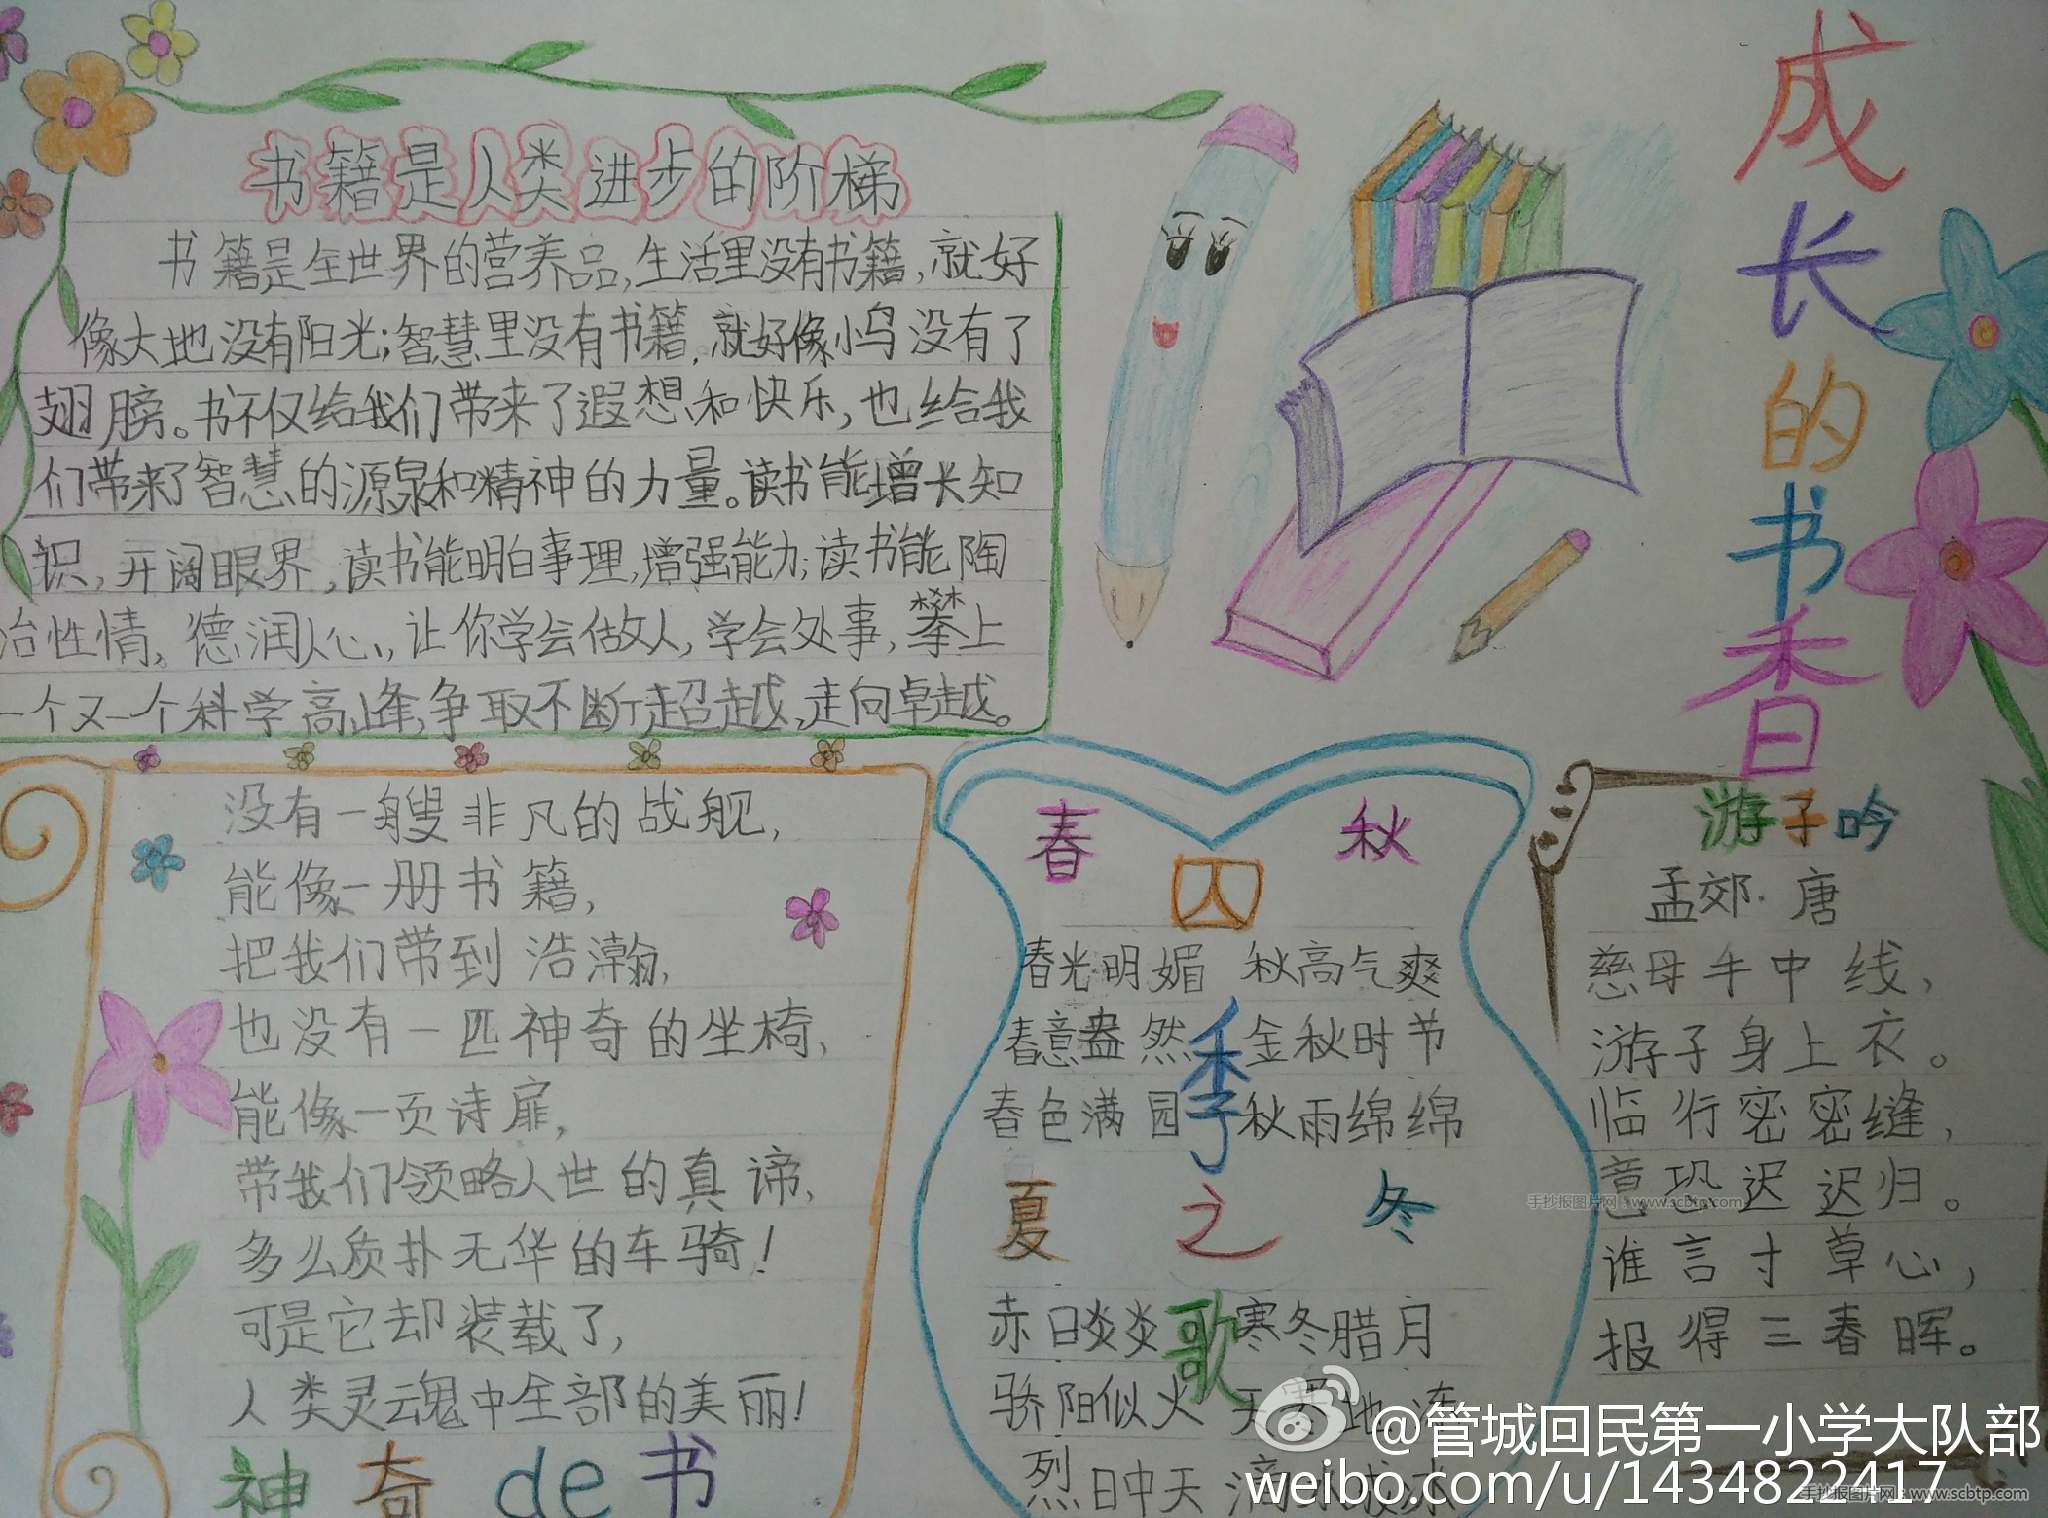 成长的书香
书籍是人类进步的阶梯
书籍是全世界的营养品,生活里没有书籍,就好
像大地没有阳光;智慧里没有书籍,就好像小鸟没有了
翅膀。书不仅给我们带来了遐想和快乐,也给我
们带来了智慧的源泉和精神的力量。读书能增长知
识,开阔眼界,读书能明白事理,增强能力;读书能陶
冶性情,德润人心,让你学会做人,学会处事,攀上
一个又一个科学高峰,争取不断超越,走向卓越。
没有一艘非凡的战舰,
能像一册书籍,
把我们带到浩瀚,
也没有一匹神奇的坐椅,
能像一页诗扉,
带我们领略人世的真谛,
多么质扑无华的车骑!
可是它却装载了,
人类灵魂中全部的美丽!
神奇de书
囚季之歌
春
春光明媚
春意盎然
春色满园
秋
秋高气爽
金秋时节
秋雨绵绵
夏
赤日炎炎
骄阳似火
烈日中天
冬
寒冬腊月
天寒地冻
滴水成冰
游子吟
孟郊·唐
慈母手中线,
游子身上衣。
临行密密缝,
意恐迟迟归。
谁言寸草心,
报得三春晖。
手抄报图片网:www.scbtp.com
@管城回民第一小学大队部
weibo.com/u/1434822417
手抄报图片网:www.scbtp.com